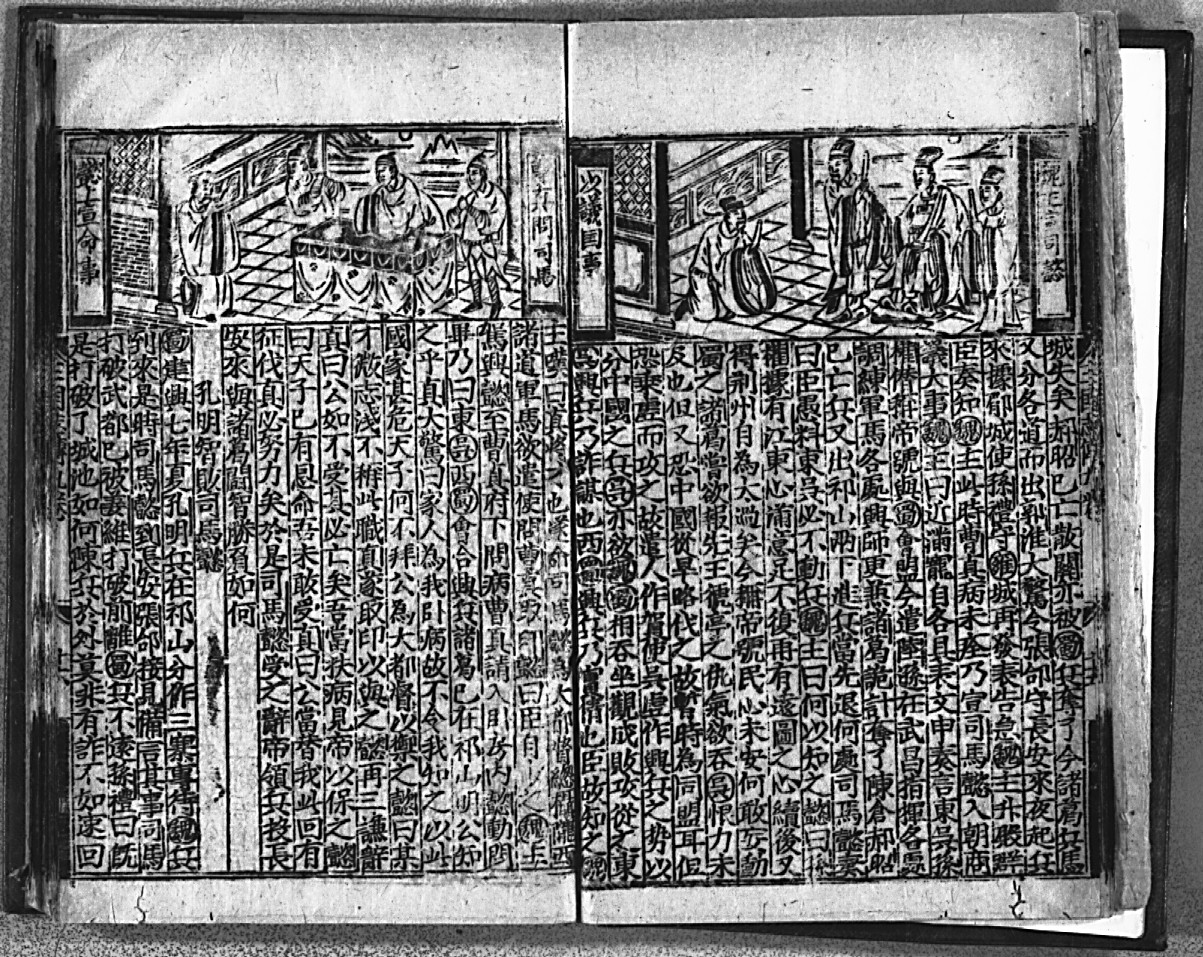 魏主宣司懿
以議国事
城失矣郝昭已亡散關亦被蜀兵奪了今諸葛兵馬
又分各道而出郭淮大驚令張郃守長安來夜起兵
來據郿城使孫禮守雍城再發表告急魏主升殿群
臣奏知魏主此時曹真病未痊乃宣司馬懿入朝商
議大事魏主曰近滿寵自各具表文申奏言東吳孫
權僭称帝號與蜀會盟今遣陸孫在武昌指揮各處
調練軍馬各處興師更兼諸葛詭計奪了陳倉郝昭
已亡兵又出祁山兩下進兵當先退何處司馬懿奏
曰臣愚料東吳必不動兵魏主曰何以知之懿曰孫
權據有江東心滿意足不復再有遠圖之心續後又
得荆州自為大過矣今稱帝號民心未安何敢妄動
蜀之諸葛嘗欲報先主猇亭之仇氣欲吞吳恨力未
及也但又恐中國從旱略伐之故暫時為同盟耳但
恐乘虛而攻之故遣人作賀使吳虛作興兵之勢以
分中國之兵吳亦欲魏蜀相吞坐觀成敗攻從之東
吳興兵乃詐謀也西蜀興兵乃實情也臣故知之魏
問司馬
懿宣命事
主嘆曰真將才也遂命司馬懿為大都督總攝隴西
諸道軍馬欲遣使問曹真取印懿曰臣自 之魏主
罵興懿至曹真府下問病曹真請入卧房内懿動問
畢乃曰東吳西蜀會合興兵諸葛已在祁山明公知
之乎真大驚曰家人為我卧病故不令我知之以此
國家甚危天子何不拜公為大都督以禦之懿曰某
才微志淺不稱此職真遂取印以與之懿再三謙辞
真曰公如不受真必亡矣吾當扶病見帝以保之懿
曰天子已有恩命吾未敢受真曰公當替我此回有
征伐真必努力矣於是司馬懿受之辭帝領兵投長
安來與諸葛闘智勝負如何
孔明智敗司馬懿
蜀建興七年夏孔明兵在祁山分作三寨專待魏兵
到來是時司馬懿到長安張郃接見備言其事司馬
打破武都已被姜維打破前離蜀兵不遠孫禮曰既
是打破了城池如何陳兵於外莫非有詐不如速回